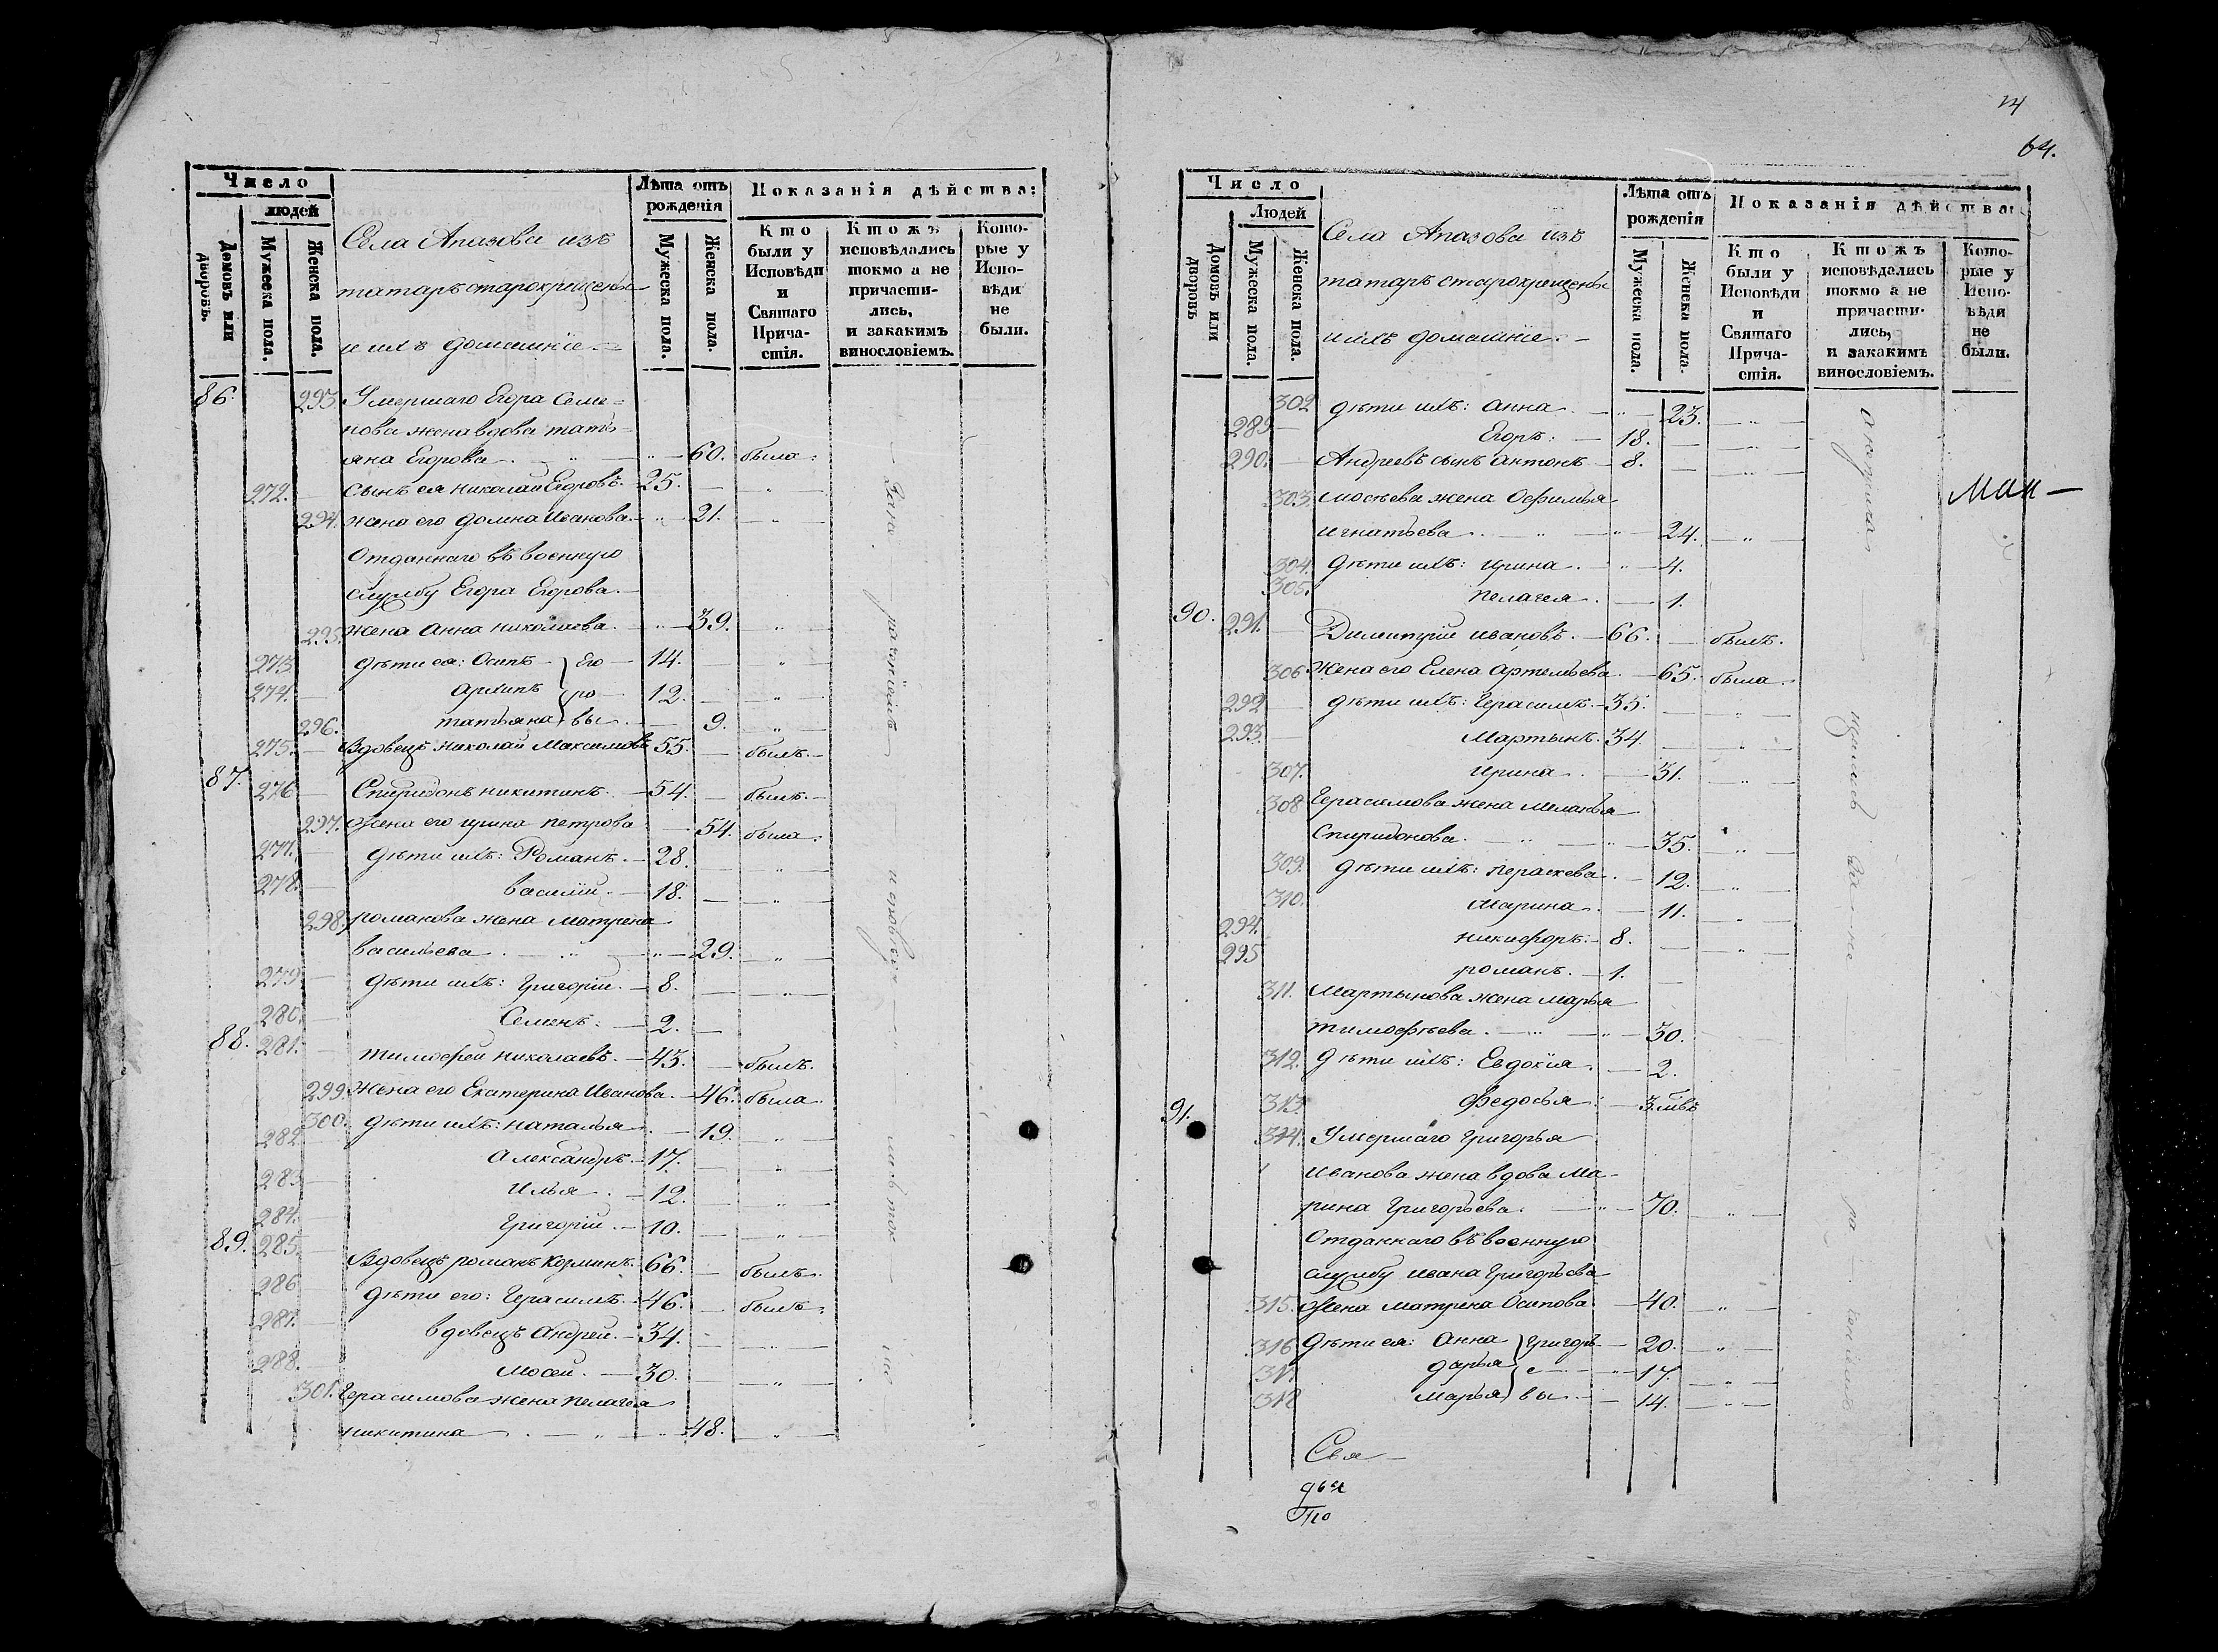 Число
людей
Домовъ или дворовъ.
Мужеска пола.
Женска пола.
Села Апазова изъ
татаръ старокрещены
и ихъ домашніе
Лѣта отъ рожденія
Мужеска пола.
Женска пола.
Показанія дѣйства:
Кто были у Исповѣди и Святаго Причастія.
Ктожъ исповѣдались токмо а не причастились, и закакимъ винословіемъ.
Которые у Исповѣди не были.
86. 293. Умершаго Егора Семе=
нова жена вдова тать=
яна Егорова 60. была.
272. Сынъ ея николай Егоровъ. 25. „
294. жена его домна Иванова. 21. „
Отданнаго въ военную
службу Егора Егорова.
295. жена Анна николаева. 39. „
273. дѣти ея: Осипъ Его 14. „
274. архипъ ро 12. „
296. татьяна вы 9. „
275. Вдовецъ николай Максимовъ 55. былъ.
87. 276. Спиридонъ никитинъ. 54. былъ.
297. Жена его ирина петрова 54. была.
277. дѣти ихъ: Романъ. 28. „
278. василій. 18. „
298. романова жена матрена
васильева 29. „
279. дѣти ихъ: Григорій. 8. „
280. Семенъ. 2.
88. 281. тимофей николаевъ. 43. былъ.
299. Жена его Екатерина Иванова. 46. была.
300. дѣти ихъ: наталья 19. „
282. Александръ. 17. „
283. Илья. 12. „
284. Григорій. 10. „
89. 285. Вдовецъ романъ козминъ. 66. былъ.
286. дѣти его: Герасимъ. 46. былъ.
287. вдовецъ андрей. 34. „
288. мосей. 30. „
301. Герасимова жена пелагея
никитина 48. „
64.
Число
Людей
Домовъ или дворовъ
Мужеска пола.
Женска пола.
Села Апазова изъ
татаръ старокрещены
и ихъ домашніе.
Лѣта отъ рожденія
Мужеска пола.
Женска пола.
Показанія дѣйства:
Кто были у Исповѣди и Святаго Причастія.
Ктожъ исповѣдались токмо а не причастились, и закакимъ винословіемъ.
Которые у Исповѣди не были.
302 дѣти ихъ: анна. 23. „
289. Егоръ. 18. „
290. Андреевъ сынъ антонъ 8. „
303. мосеева жена Офимья
игнатьева 24. „
304. дѣти ихъ: ирина. 4.
305. пелагея. 1.
90. 291. Димитрій ивановъ. 66. былъ.
306 Жена его Елена артемьева. 65. была.
292 дѣти ихъ: Герасимъ. 35. „
293. Мартынъ. 34. „
307. ирина. 31. „
308 Герасимова жена меланья
Спиридонова. 35. „
309. дѣти ихъ: параскева. 12. „
310. марина. 11. „
294. никифоръ. 8. „
295 романъ. 1.
311. Мартынова жена марья
тимофѣева. 30.
312. дѣти ихъ: Евдокія. 2.
313. федосья
91. 314. Умершаго Григорья
иванова жена вдова ма-
рина Григорьева. 70. „
Отданнаго въ военную
службу ивана Григорьева
315. Жена матрена Осипова 40. „
316 дѣти ея: анна Григорь 20. „
317. дарья е 17. „
318 марья вы 14. „